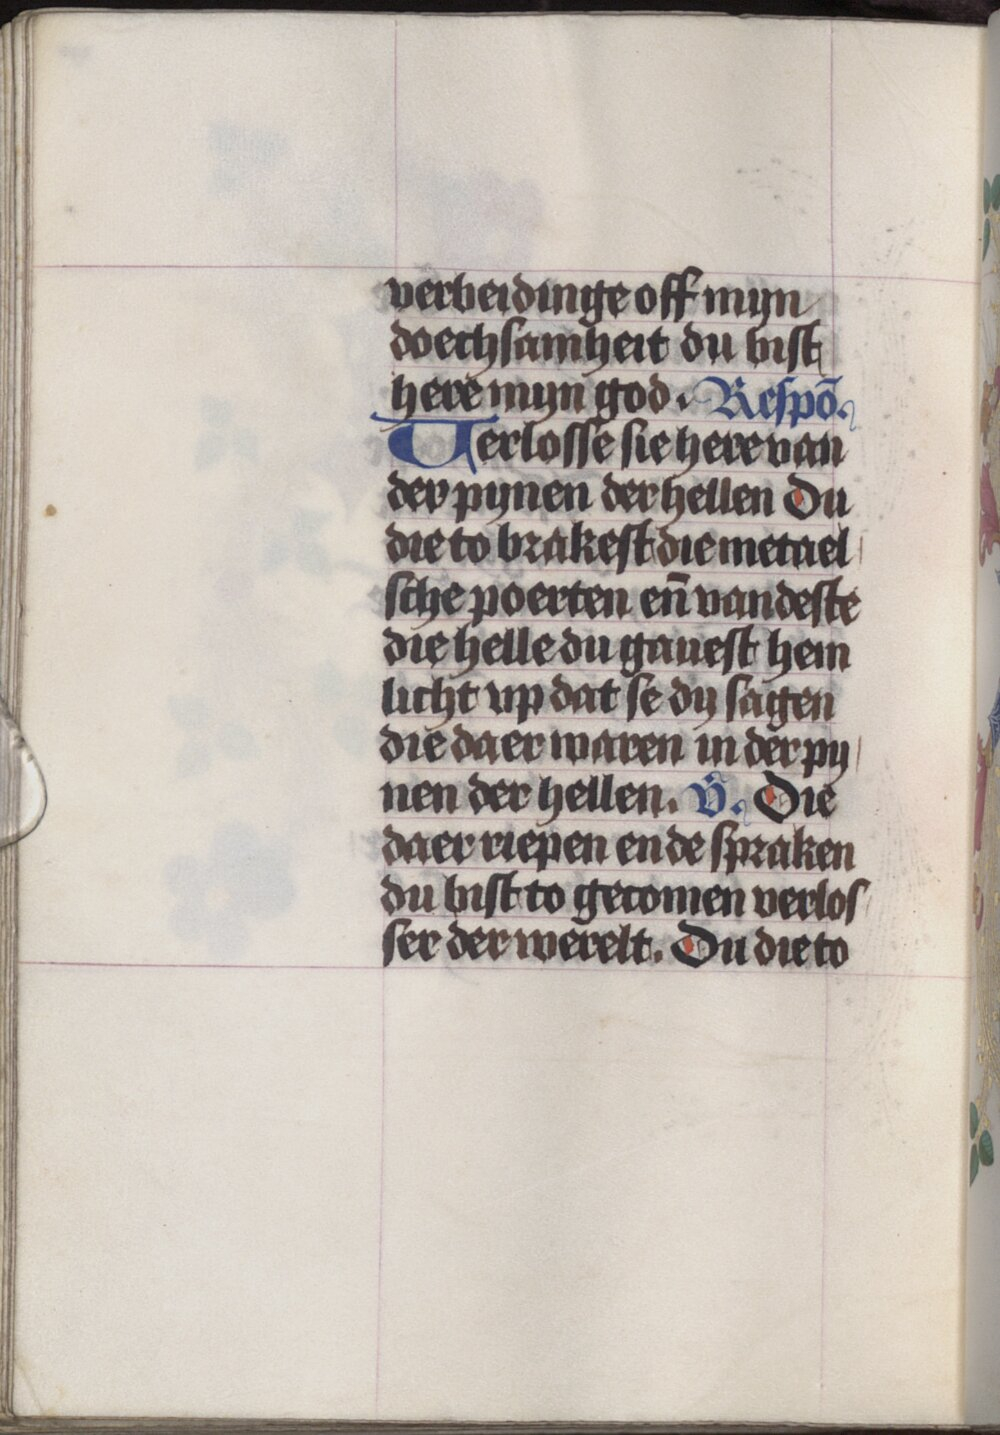 verbeidinge off mijn
doechsamheit du bist
here mijn god. Respō.
Verlosse sie here van
der pijnen der hellen Du
die to brakest die metael
sche poerten en̄ vandeste
die helle du gauest hem
licht up dat se dij sagen
die daer waren in der pij
nen der hellen. V̄. Die
daer riepen ende spraken
du bist to gecomen verlos
ser der werelt. Du die to